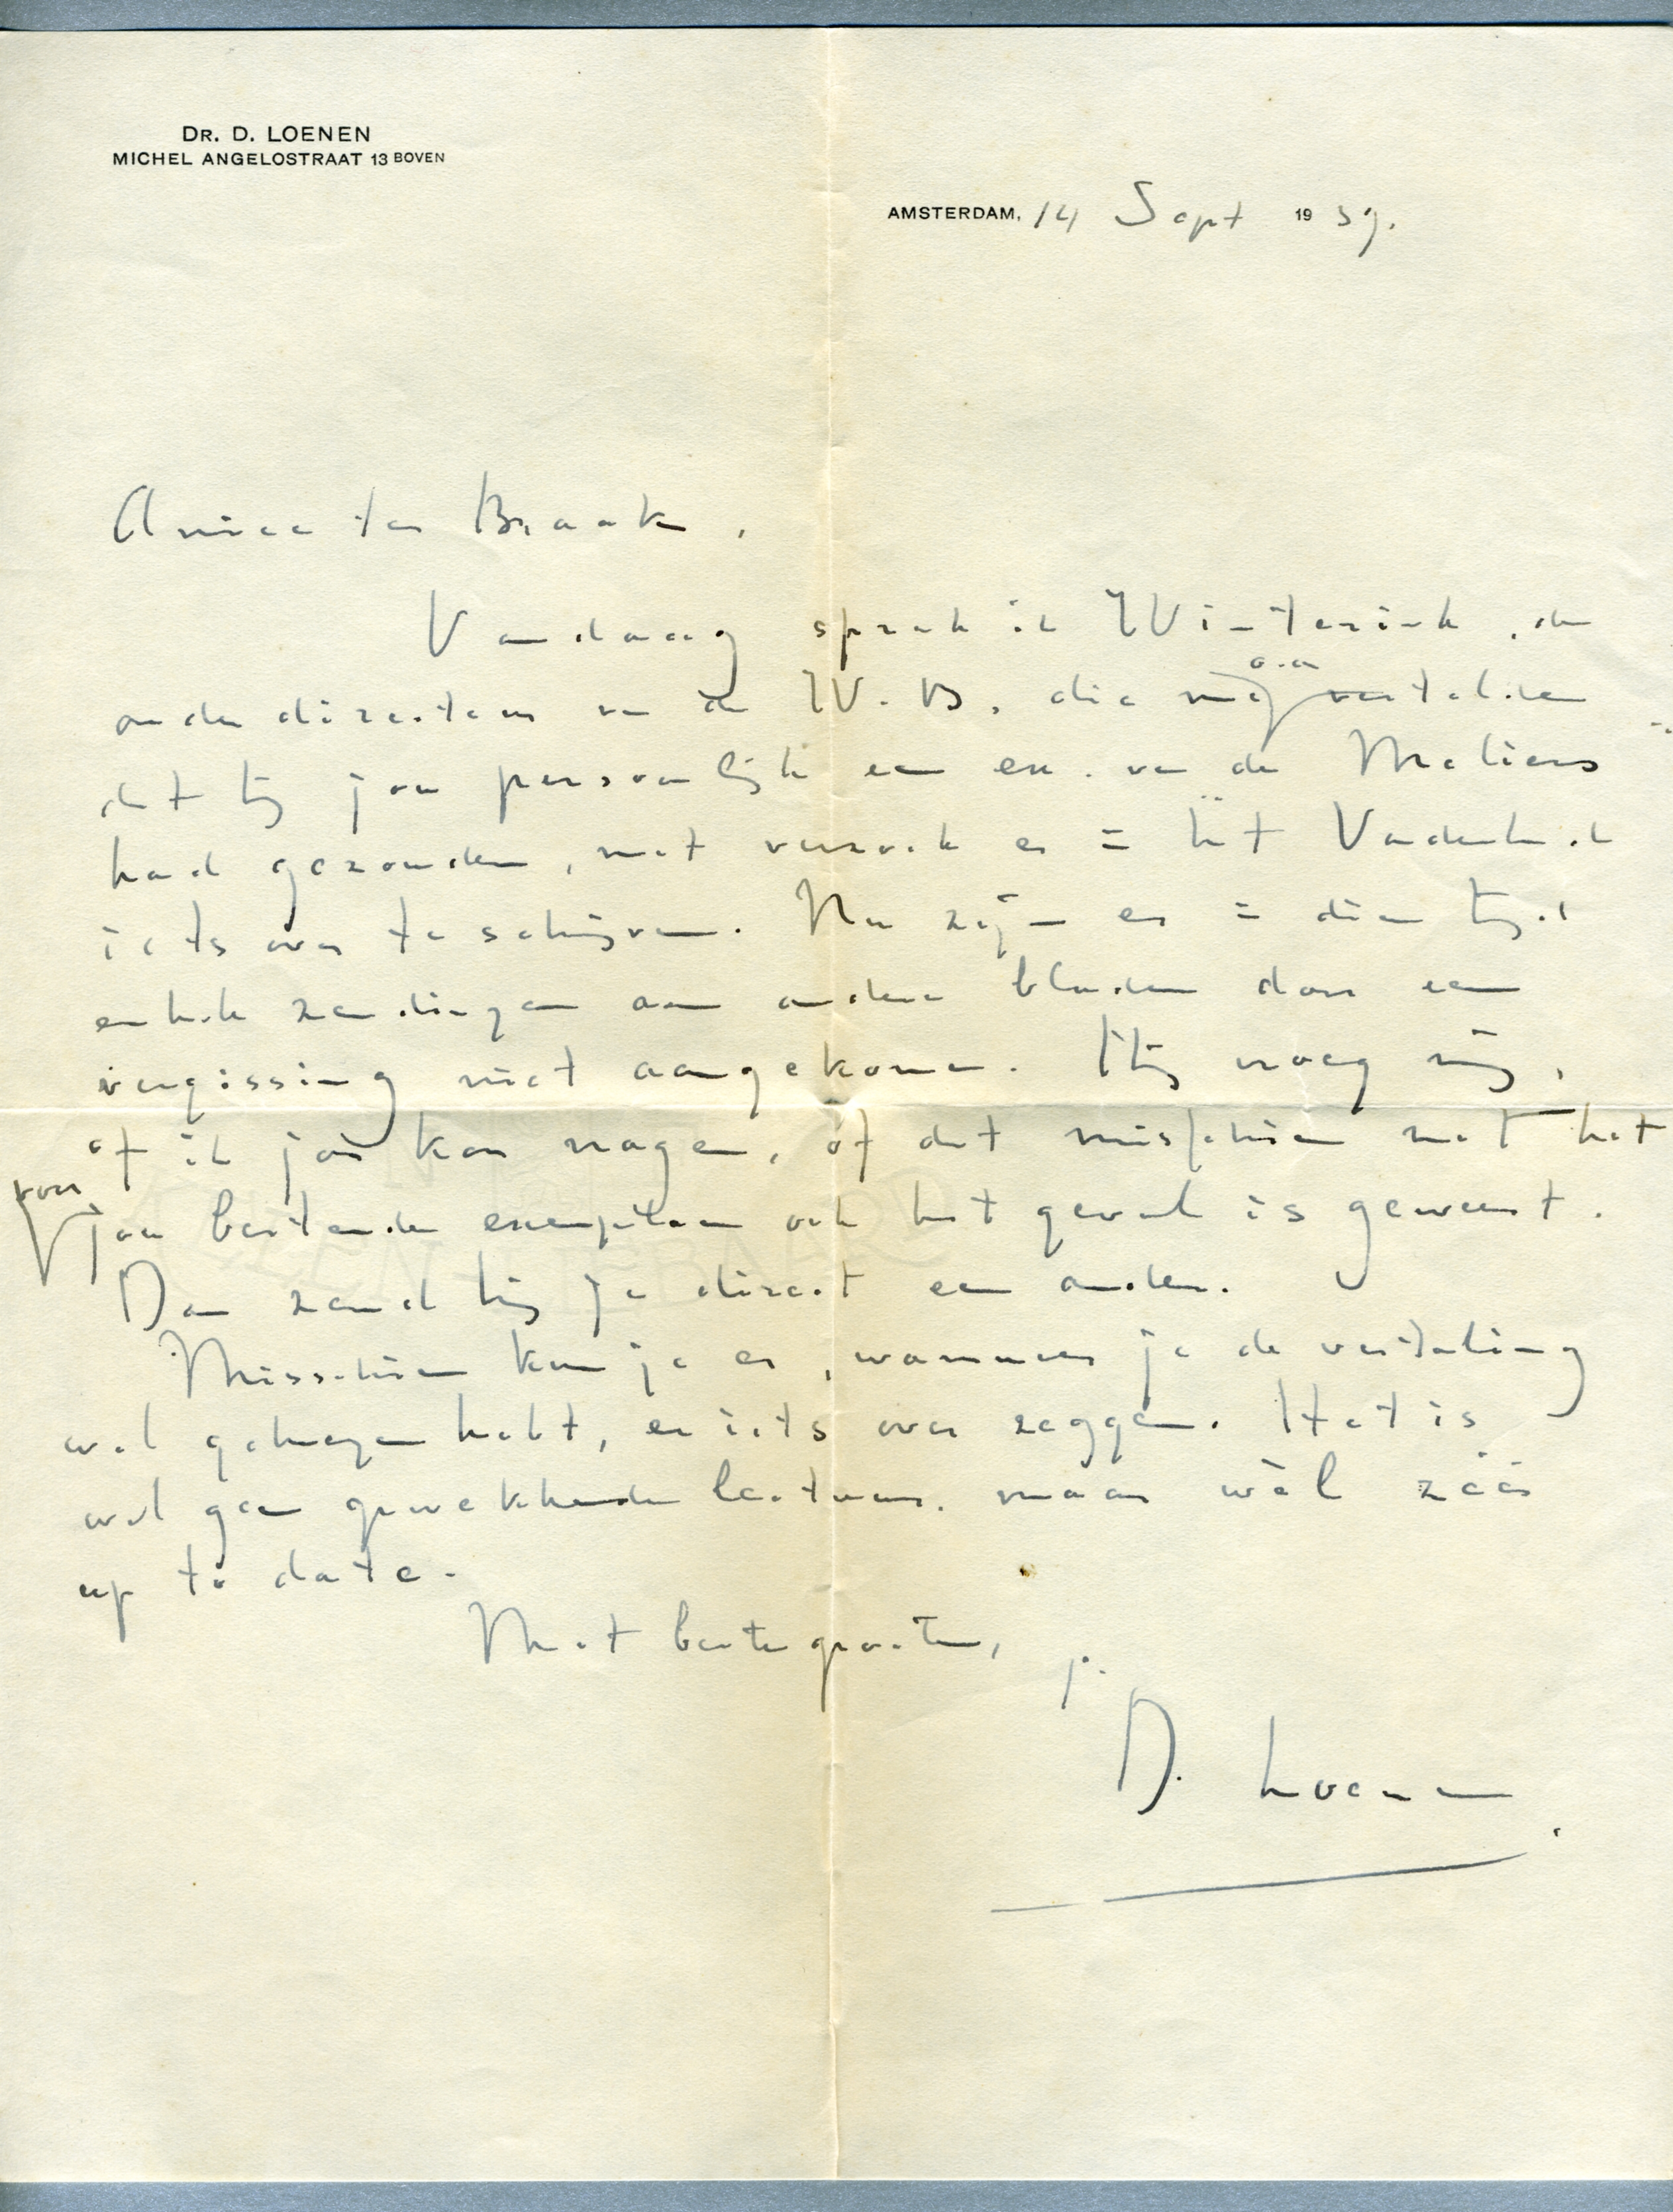 DR. D. LOENEN
MICHEL ANGELOSTRAAT 13 BOVEN
AMSTERDAM, 14 Sept 1939.
Amice ter Braak,
Vandaag sprak ik Winterink, den
onderdirecteur van de W.B., die mij o.a. vertelde
dat hij jou persoonlijk een ex. van de Meliërs
had gezonden, met verzoek er in het Vaderland
iets over te schrijven. Nu zijn er in dien tijd
enkele zendingen aan andere bladen door een
vergissing niet aangekomen. Hij vroeg mij,
of ik jou kon vragen, of dat misschien met het
voor jou bestemde exemplaar ook het geval is geweest.
Dan zendt hij je direct een ander.
Misschien kun je er, wanneer je de vertaling
wel gekregen hebt, er iets over zeggen. Het is
wel geen opwekkende lectuur, maar wèl zéér
up to date.
Met beste groeten,
je
D. Loenen